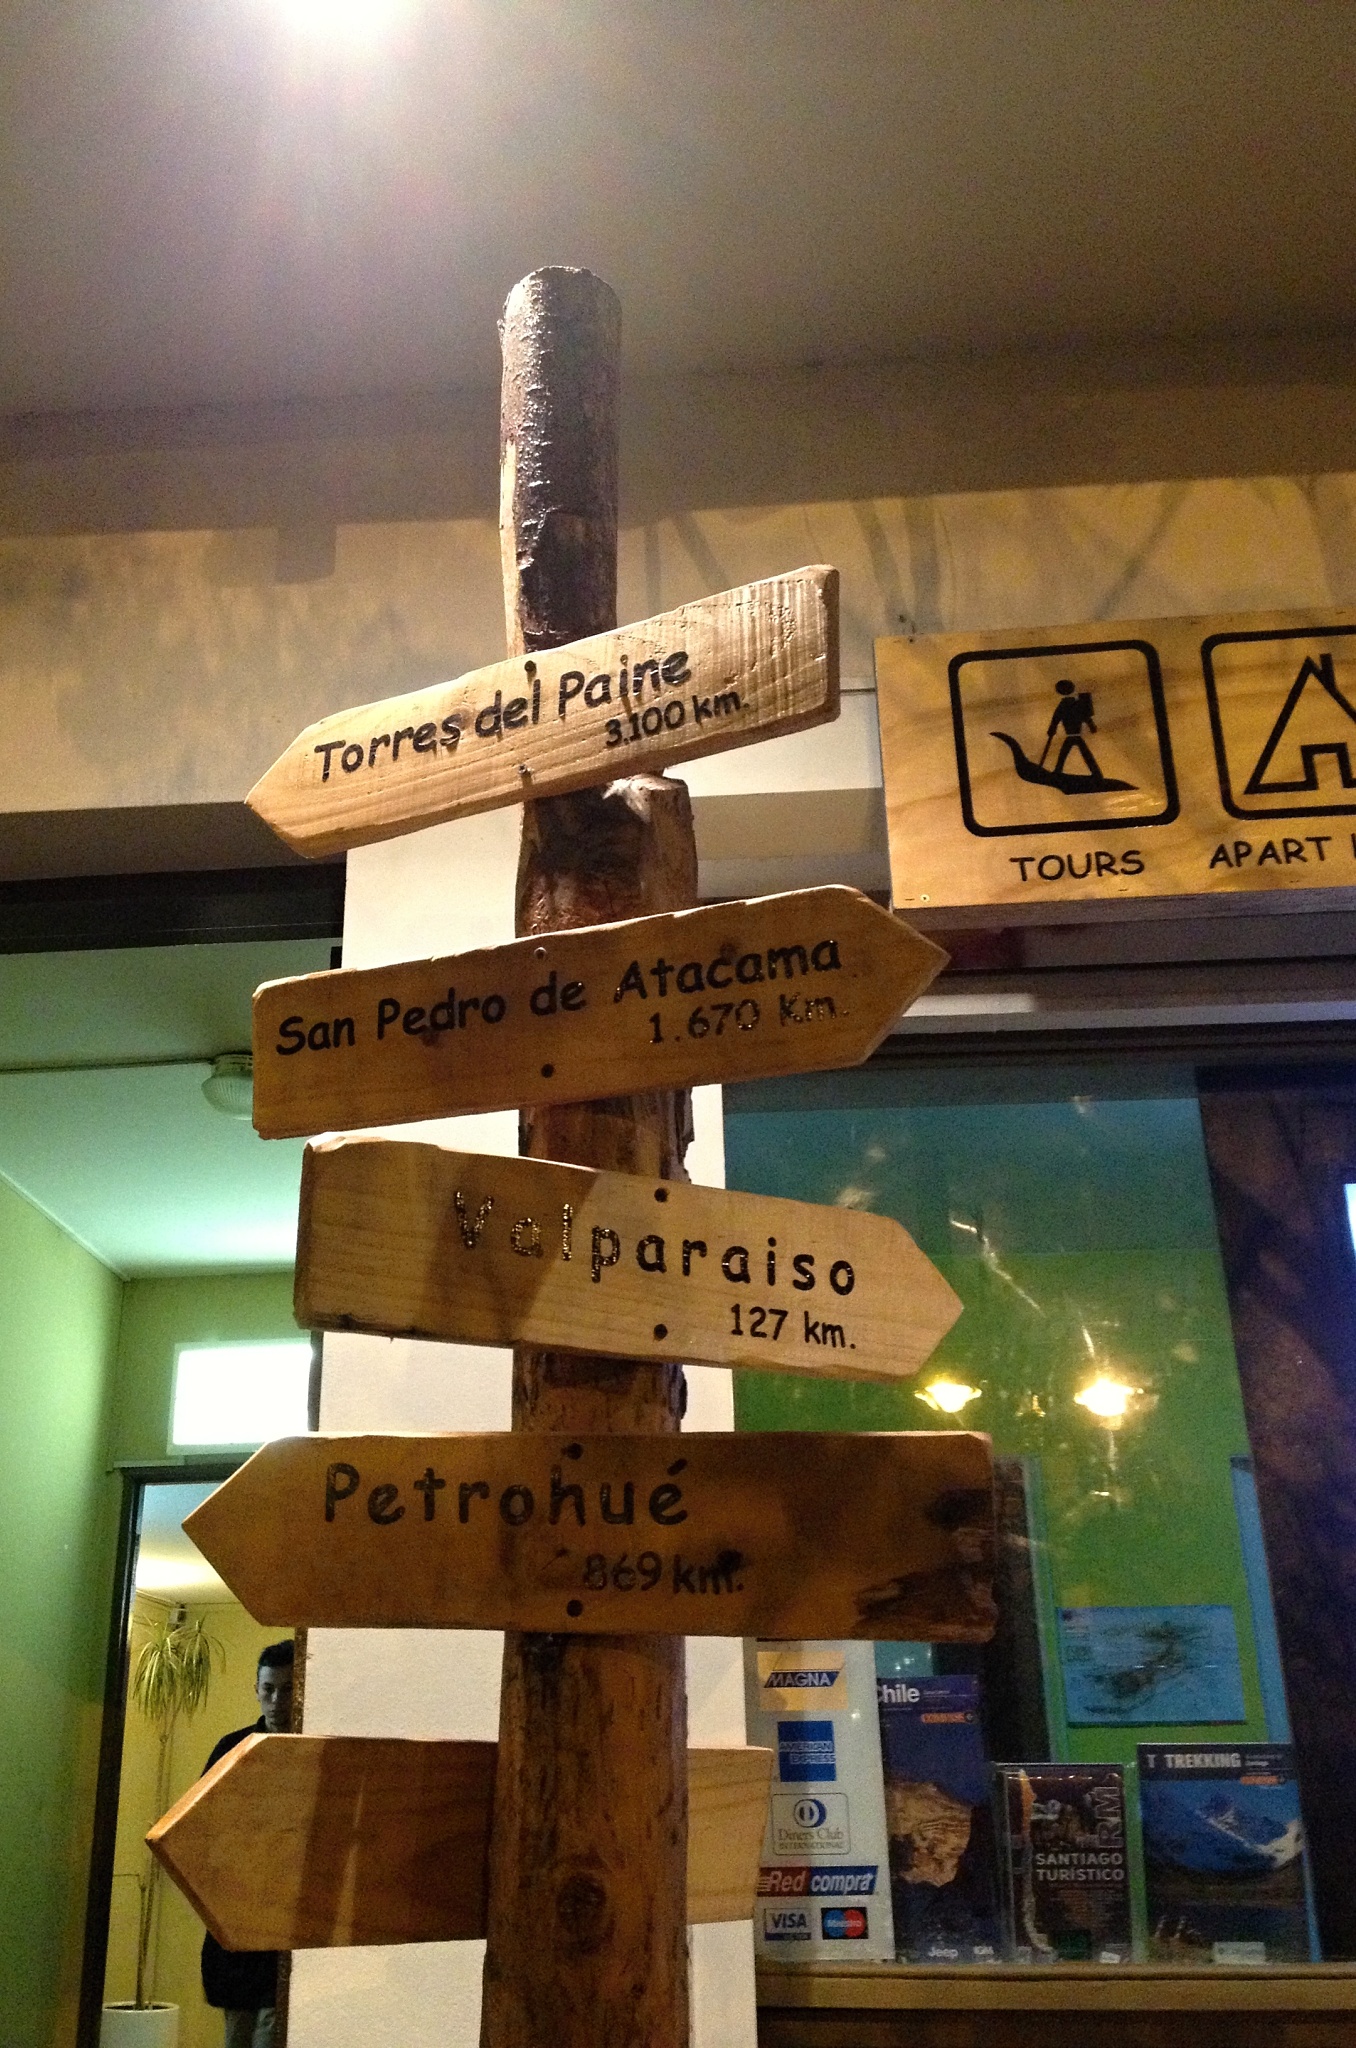 Torres del Paine
3.100 km.
TOURS
APART
San Pedro de Atacama
1.670 Km.
Valparaiso
127 km.
Petrohué
869 km.
MAGNA
AMERICAN
EXPRESS
Diners Club
INTERNATIONAL
Red compra
VISA
Maestro
Chile
COMPASS
Jeep
SANTIAGO
TURÍSTICO
TREKKING